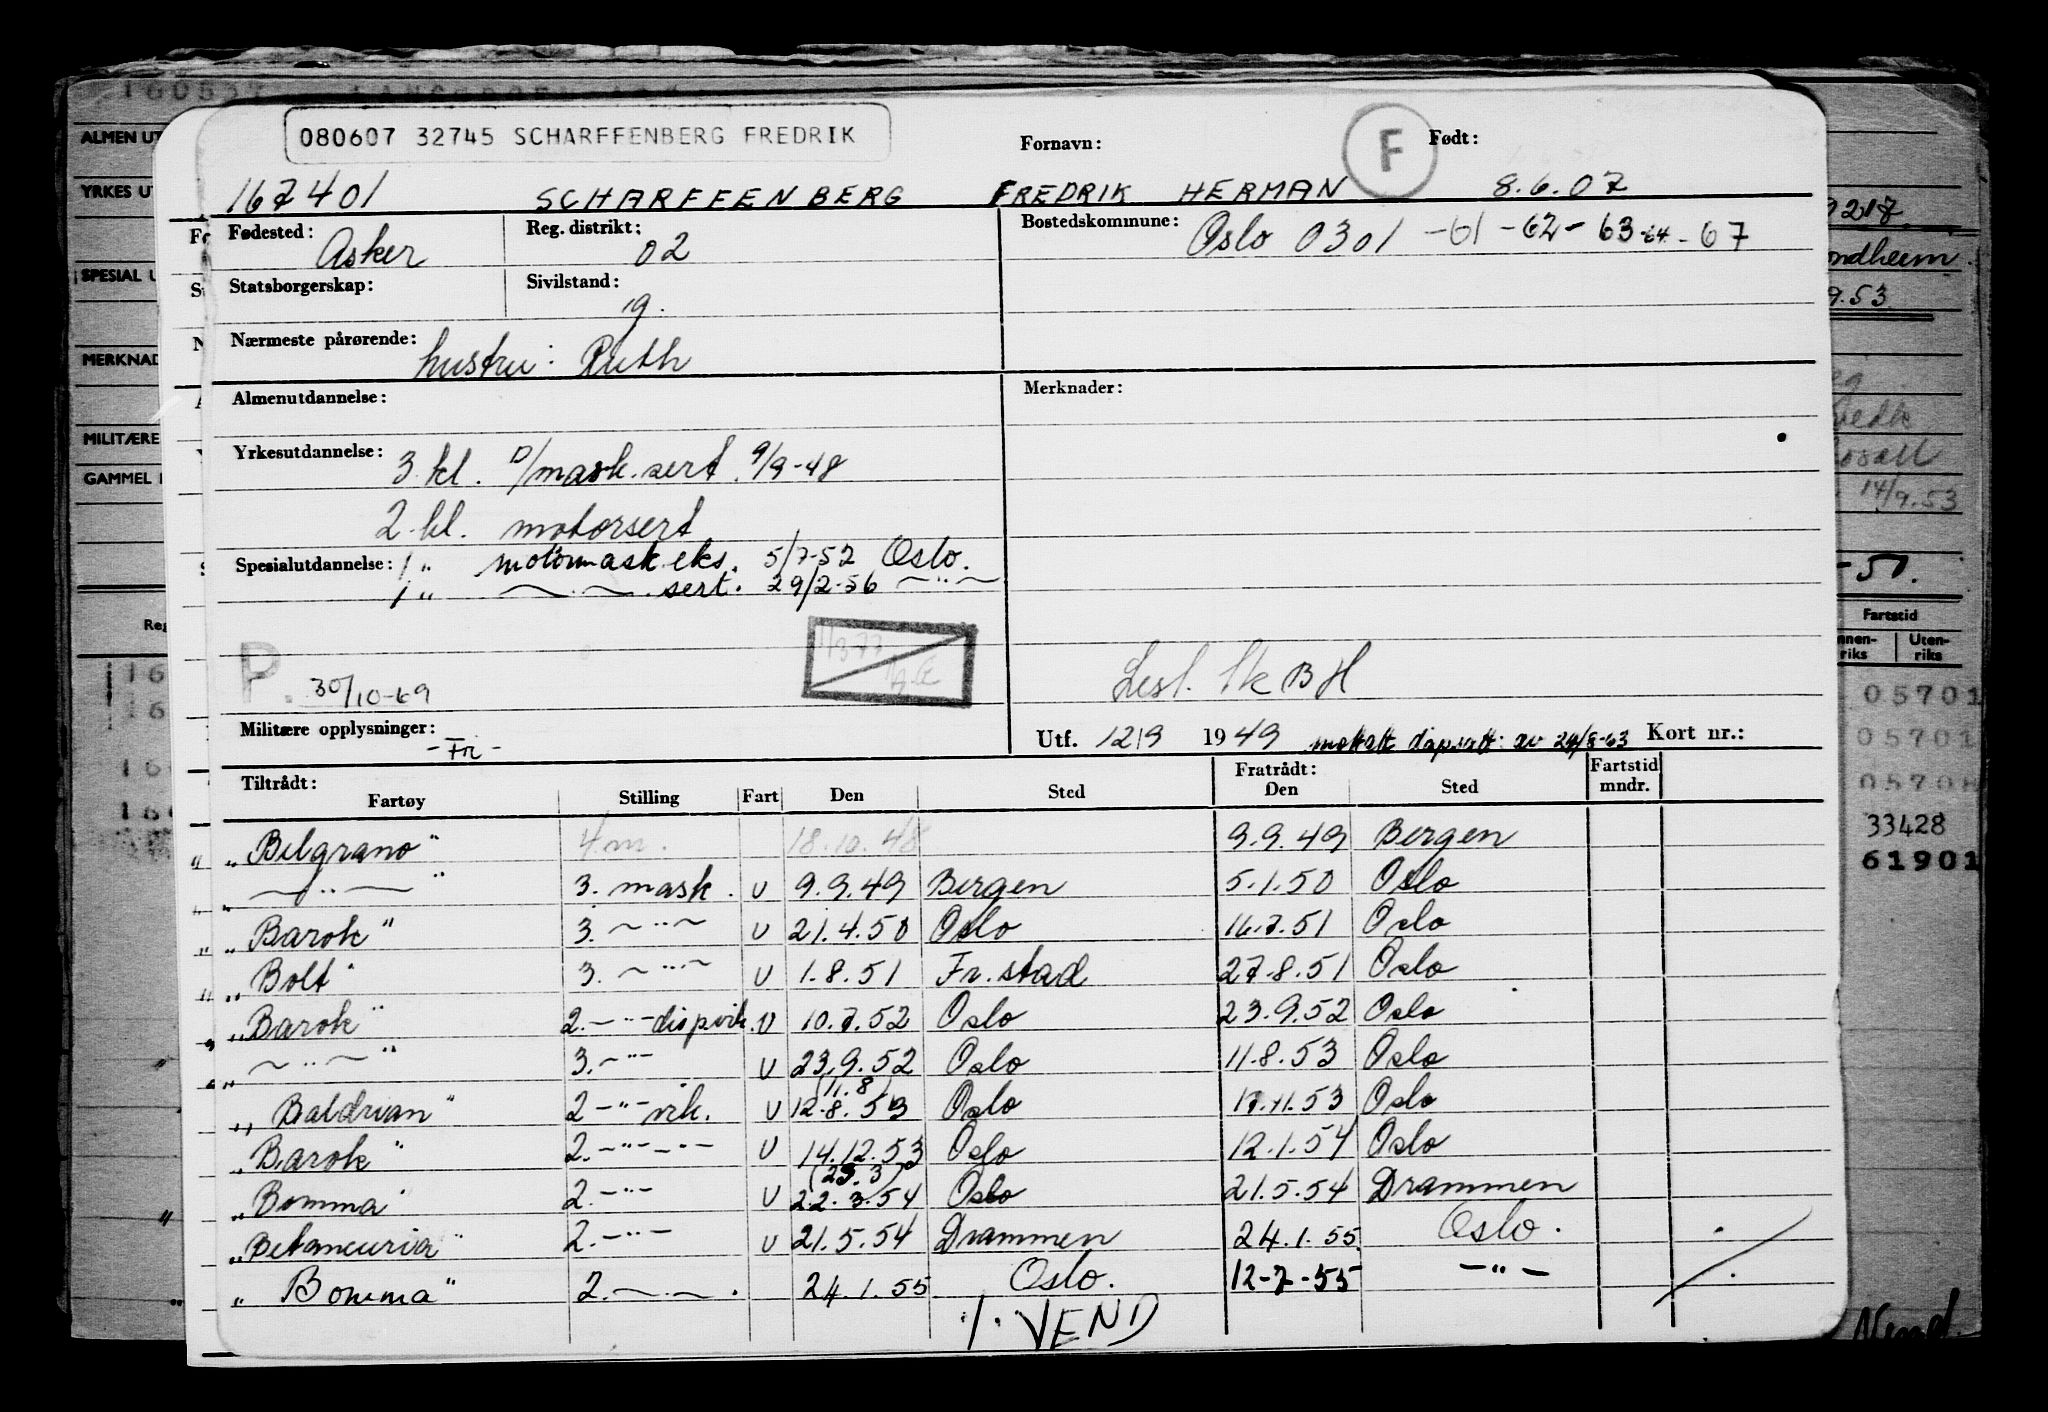 080607 32745 SCHARFFENBERG FREDRIK
Fornavn: F Født:
167401 SCHARFFENBERG FREDRIK HERMAN 8.6.07
Fødested: Asker Reg. distrikt: 02 Bostedskommune: Oslo 0301 -61-62-63-64-67
Statsborgerskap: Sivilstand: g.
Nærmeste pårørende: hustru: Ruth
Almenutdannelse: Merknader:
Yrkesutdannelse: 3 kl. D/mask.sert. 9/9-48
2 kl. motorsert
Spesialutdannelse: 1 " motormask.eks. 5/7-52 Oslo.
1 " — " — sert. 29/2-56 — " —
P. 30/10-69
Militære opplysninger: -Fri- Utf. 12/9 1949 Kort nr.:
Tiltrådt: Fratrådt: Fartstid
Fartøy Stilling Fart Den Sted Den Sted mndr.
"Belgrano" 4.m. 18.10.48 9.9.49 Bergen
— " — " 3. mask. U 9.9.49 Bergen 5.1.50 Oslo
"Barok" 3. — " — U 21.4.50 Oslo 16.7.51 Oslo
"Bolt" 3. — " — U 1.8.51 Fr.stad 27.8.51 Oslo
"Barok" 2. — " — dispvik. U 10.7.52 Oslo 23.9.52 Oslo
" — " — " 3. — " — U 23.9.52 Oslo 11.8.53 Oslo
(11.8)
"Baldrian" 2 — " — vik. U 12.8.53 Oslo 17.11.53 Oslo
"Barok" 2. — " — " — U 14.12.53 Oslo 12.1.54 Oslo
(23.3)
"Bomma" 2. — " — U 22.3.54 Oslo 21.5.54 Drammen
"Betancuria" 2. — " — U 21.5.54 Drammen 24.1.55 Oslo.
"Bomma" 2. — " — . 24.1.55 Oslo. 12-7-55 — " —
VEND
ALMEN UT
YRKES UT
SPESIAL U
MERKNAD
MILITÆRE
GAMMEL
Reg
9.53
14/9.53
-51.
Fartstid
Uten-
riks
05701
05701
05708
33428
61901
Vend.